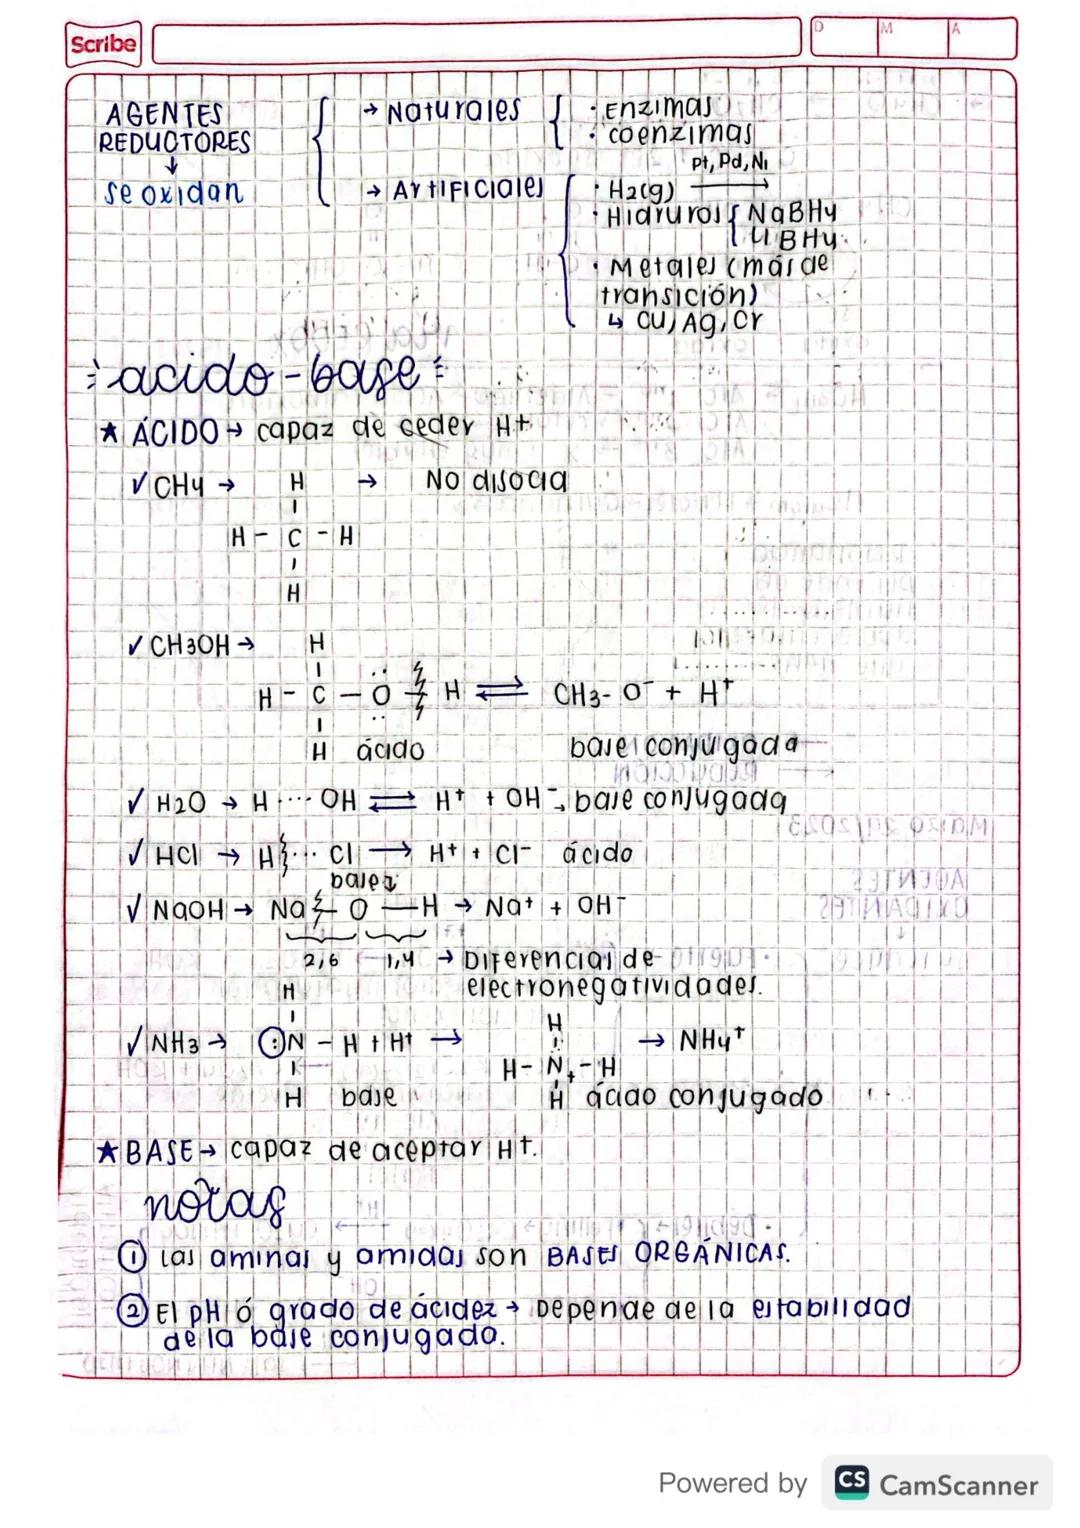 Scribe
D M A
AGENTES REDUCTORES
↓
se oxidan
→ Naturales
· Enzimas
· coenzimas
→ Artificiales
Pt, Pd, Ni
· H2(g) →
· Hidruros { NaBH4
LiBH4
· Metales (más de
transición)
↳ Cu, Ag, Cr
acido-base
★ ÁCIDO → capaz de ceder H+
✓ CH4 → H → No disocia
H - C - H
H
✓ CH3OH → H
H - C - O H ⇌ CH3-O⁻ + H⁺
H ácido base conjugada
✓ H2O → H ···· OH ⇌ H⁺ + OH⁻ → base conjugada
✓ HCl → H ··· Cl → H⁺ + Cl⁻ ácido
bases
✓ NaOH → Na - O — H → Na⁺ + OH⁻
2,6 1,4 → Diferencias de
electronegatividades.
H H
✓ NH3 → :N - H + H⁺ → H - N⁺ - H → NH4⁺
H base H ácido conjugado
★ BASE → capaz de aceptar H+.
notas
① Las aminas y amidas son BASES ORGÁNICAS.
② El pH ó grado de ácidez → Depende de la estabilidad
de la base conjugado.
Powered by CS CamScanner